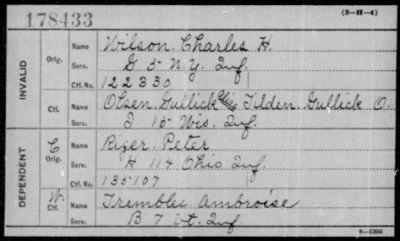 178433
(3-H-4)
INVALID
Orig.
Name Wilson, Charles H.
Serv. G 5 N.Y. Inf.
Ctf. No. 122330
Ctf.
Name Olsen, Gullick alias Tilden, Gullick O.
Serv. I 15 Wis. Inf.
DEPENDENT
C
Orig.
Name Rizer, Peter
Serv. H 114 Ohio Inf.
Ctf. No. 135107
W.
Ctf.
Name Trembles Ambroise
Serv. B 7 Vt. Inf